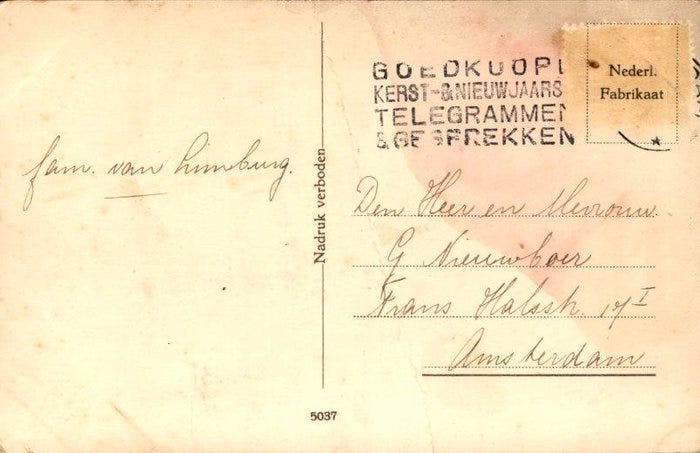 GOEDKOOPE
KERST-&NIEUWJAARS
TELEGRAMMEN
& GESPREKKEN
Nederl.
Fabrikaat
fam. van Limburg.
Nadruk verboden
Den Heer en Mevrouw
G Nieuwboer
Frans Halsstr. 17 I
Amsterdam
5037